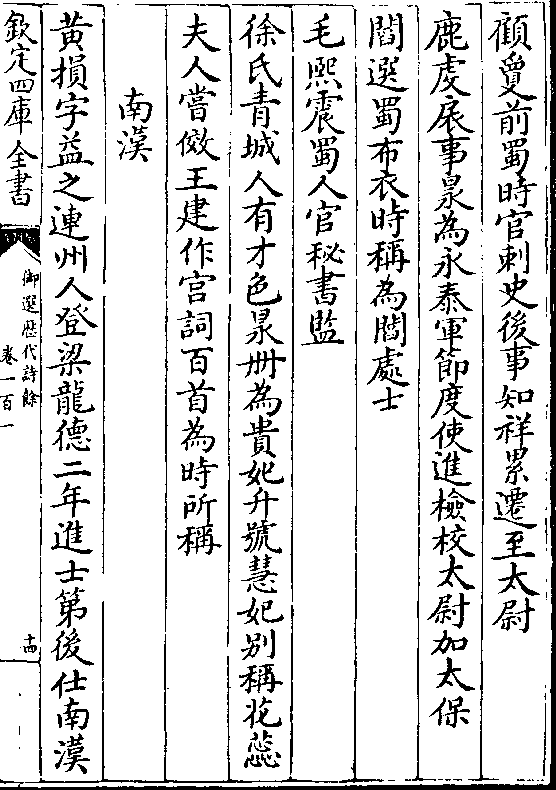 顧敻前蜀時官刺史後事知祥累遷至太尉
鹿虔扆事昶為永泰軍節度使進檢校太尉加太保
閻選蜀布衣時稱為閻處士
毛熙震蜀人官秘書監
徐氏青城人有才色昶冊為貴妃升號慧妃别稱花蕊
夫人嘗傚王建作宫詞百首為時所稱
南漢
黄損字益之連州人登梁龍德二年進士第後仕南漢
欽定四庫全書
御選歴代詩餘
卷一百一
十四